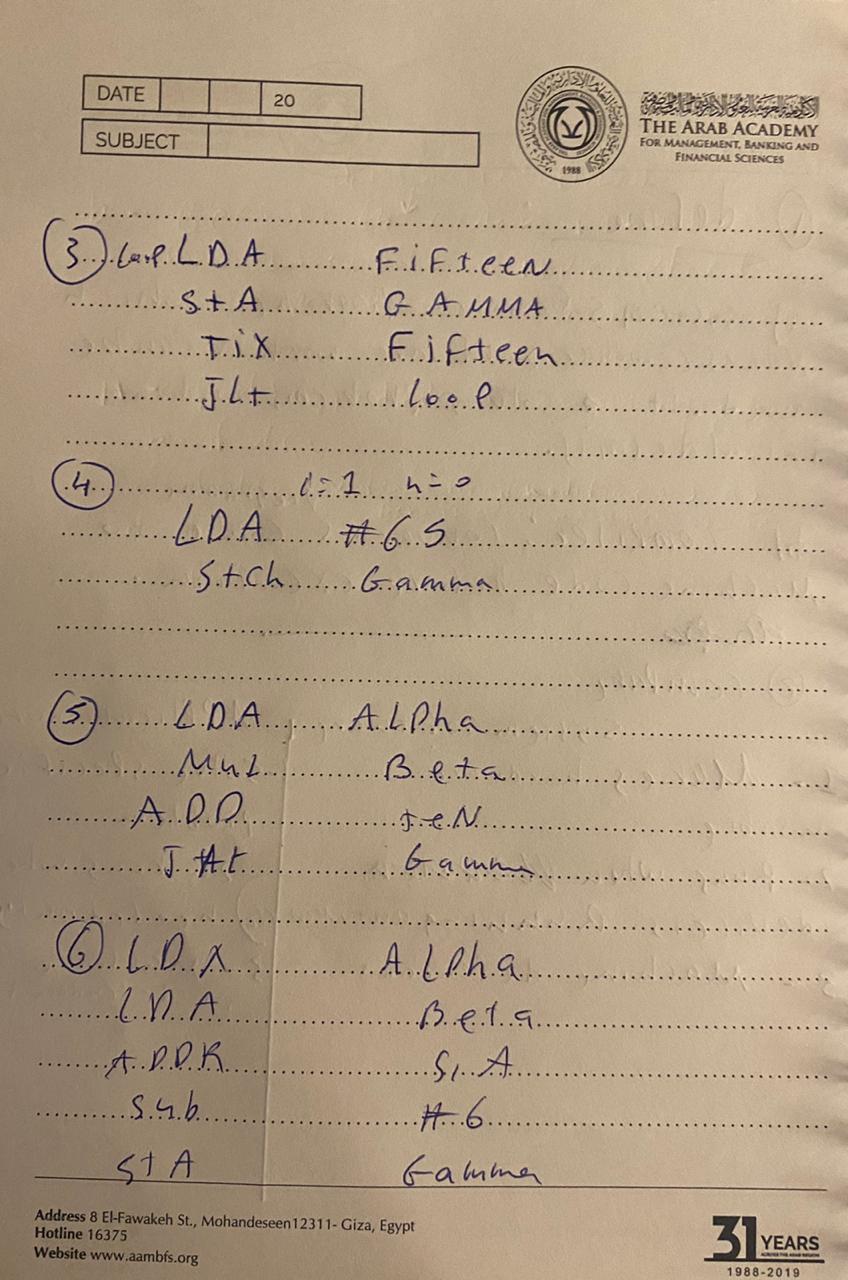 DATE 20
SUBJECT
1988
THE ARAB ACADEMY
FOR MANAGEMENT, BANKING AND
FINANCIAL SCIENCES
3 LDA FiFteeN
StA GAMMA
TiX Fifteen
JLt loop
4 i=1 n=0
LDA #65
StCh Gamma
5 LDA ALPha
Mul Beta
ADD teN
Gamma
6 LDX ALPha
LDA Beta
ADDR S, A
Sub #6
StA Gamma
Address 8 El-Fawakeh St., Mohandeseen12311- Giza, Egypt
Hotline 16375
Website www.aambfs.org
31 YEARS
1988-2019